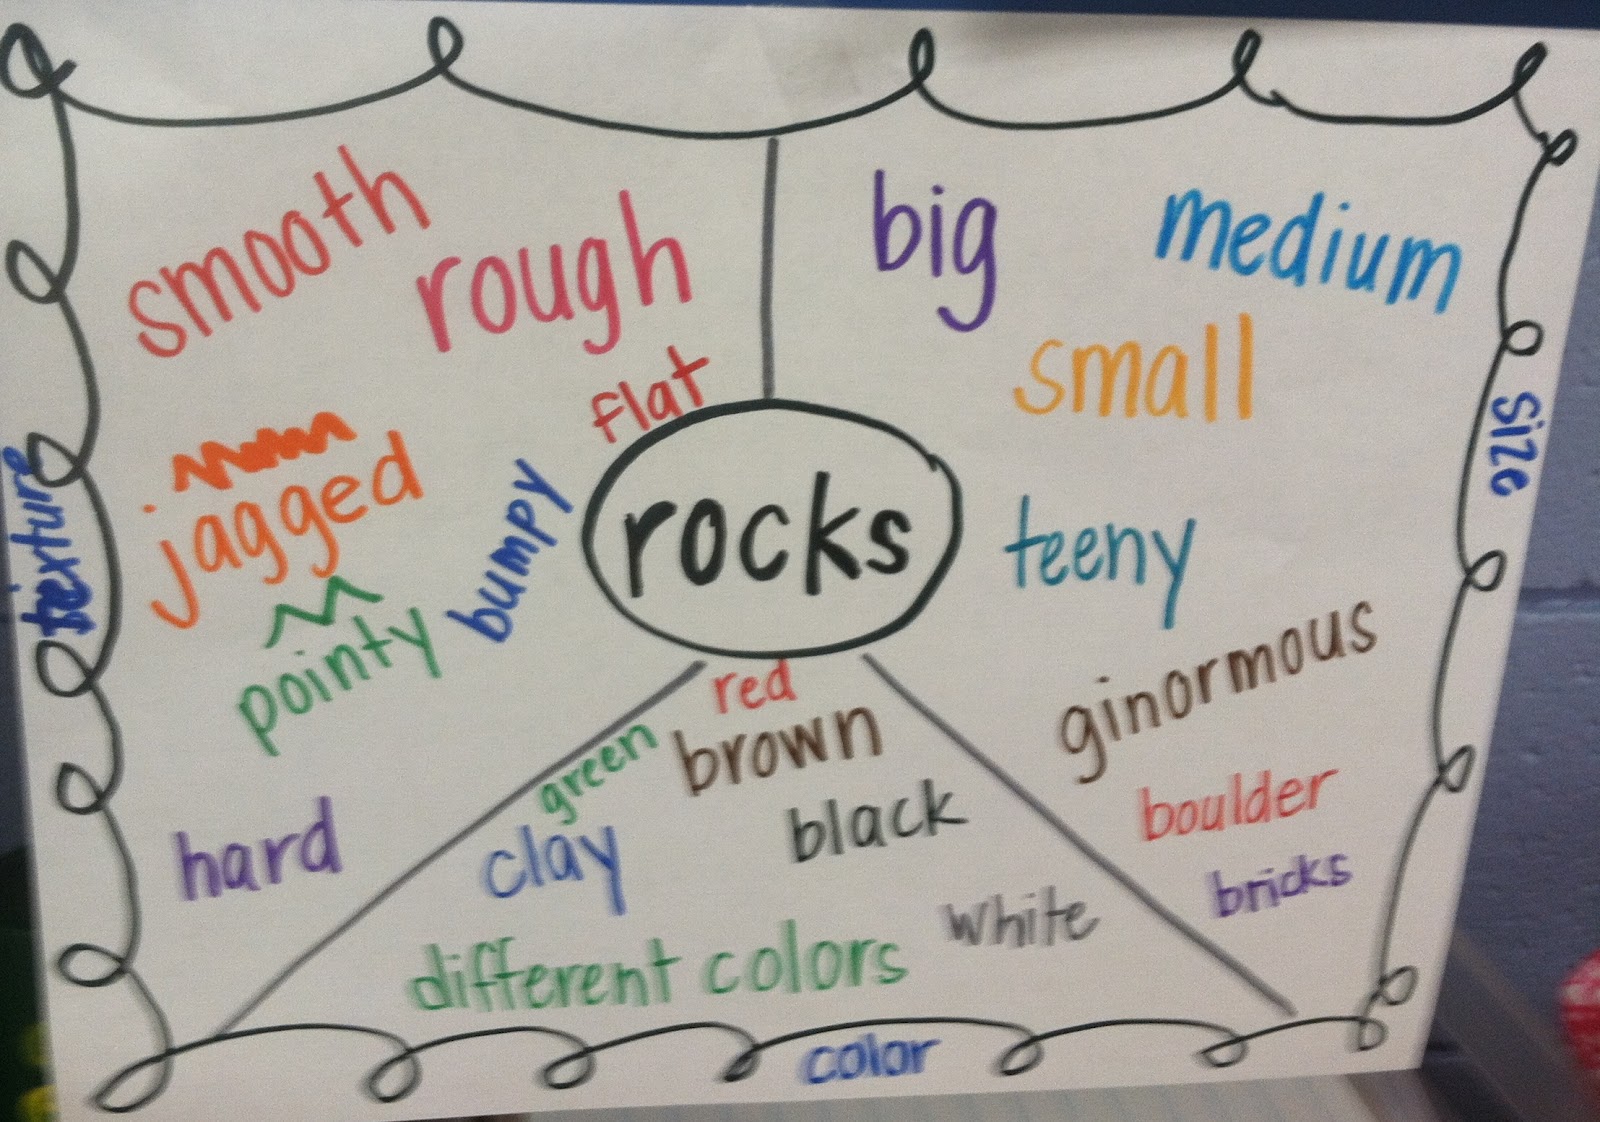 smooth
rough
flat
jagged
bumpy
pointy
hard
texture
big
medium
small
teeny
ginormous
boulder
bricks
size
rocks
red
green
brown
clay
black
white
different colors
color